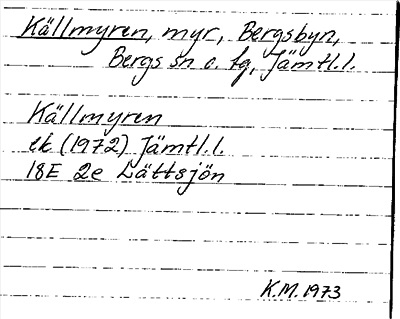 Källmyren, myr, Bergsbyn,
Bergs sn o. tg, Jämtl.l.
Källmyren
ek (1972) Jämtl.l.
18E 2e Lättsjön
K.M. 1973